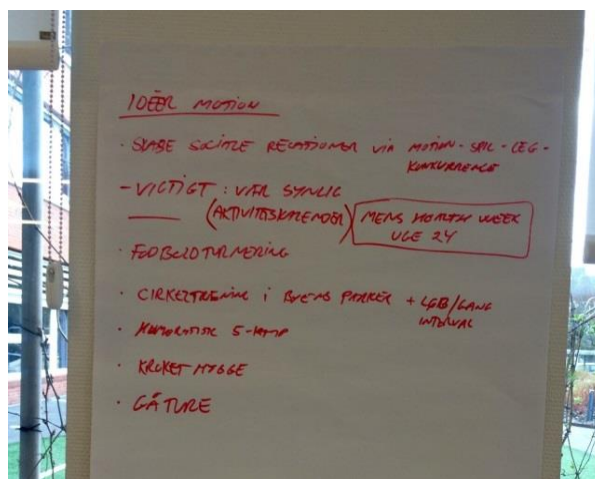 IDÉER MOTION
· SKABE SOCIALE RELATIONER VIA MOTION - SPIL - LEG -
KONKURRENCE
- VIGTIGT : VÆR SYNLIG
(AKTIVITETSKALENDER) MENS HEALTH WEEK
UGE 24
· FODBOLDTURNERING
· CIRKELTRÆNING I BYENS PARKER + LØB/GANG
INTERVAL
· HUMORISTISK 5-KAMP
· KROKET HYGGE
· GÅTURE